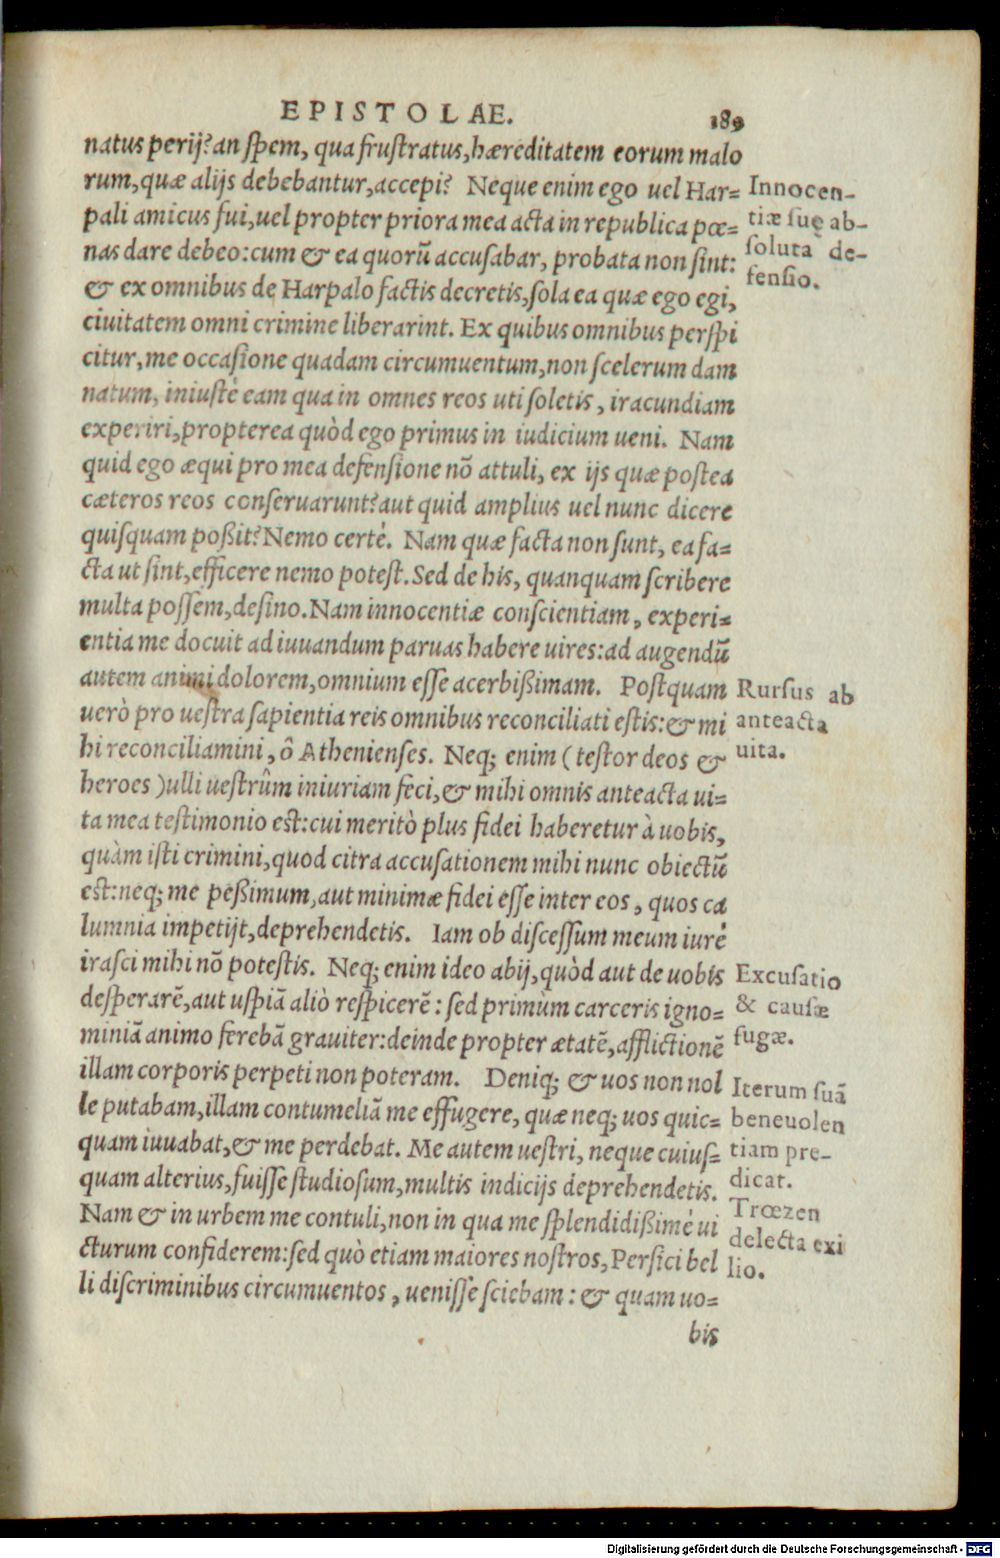 EPISTOLAE. 189
natus perij? an ſpem, qua fruſtratus, hæreditatem eorum malo
rum, quæ alijs debebantur, accepi? Neque enim ego uel Har=
pali amicus fui, uel propter priora mea acta in republica pœ=
nas dare debeo: cum & ea quorū accuſabar, probata non ſint:
& ex omnibus de Harpalo factis decretis, ſola ea quæ ego egi,
ciuitatem omni crimine liberarint. Ex quibus omnibus perſpi
citur, me occaſione quadam circumuentum, non ſcelerum dam
natum, iniuſtè eam qua in omnes reos uti ſoletis, iracundiam
experiri, propterea quòd ego primus in iudicium ueni. Nam
quid ego æqui pro mea defenſione nō attuli, ex ijs quæ poſtea
cæteros reos conſeruarunt? aut quid amplius uel nunc dicere
quiſquam poßit? Nemo certè. Nam quæ facta non ſunt, ea fa=
cta ut ſint, efficere nemo poteſt. Sed de his, quanquam ſcribere
multa poſſem, deſino. Nam innocentiæ conſcientiam, experi=
entia me docuit ad iuuandum paruas habere uires: ad augendū
autem animi dolorem, omnium eſſe acerbißimam. Poſtquam
uerò pro ueſtra ſapientia reis omnibus reconciliati eſtis: & mi
hi reconciliamini, ô Athenienſes. Neq; enim (teſtor deos &
heroes) ulli ueſtrûm iniuriam feci, & mihi omnis anteacta ui=
ta mea teſtimonio eſt: cui meritò plus fidei haberetur à uobis,
quàm iſti crimini, quod citra accuſationem mihi nunc obiectū
eſt: neq; me peßimum, aut minimæ fidei eſſe inter eos, quos ca
lumnia impetijt, deprehendetis. Iam ob diſceſſum meum iurè
iraſci mihi nō poteſtis. Neq; enim ideo abij, quòd aut de uobis
deſperarē, aut uſpiā aliò reſpicerē: ſed primum carceris igno=
miniā animo ferebā grauiter: deinde propter ætatē, afflictionē
illam corporis perpeti non poteram. Deniq; & uos non nol
le putabam, illam contumeliā me effugere, quæ neq; uos quic=
quam iuuabat, & me perdebat. Me autem ueſtri, neque cuiuſ=
quam alterius, fuiſſe ſtudioſum, multis indicijs deprehendetis.
Nam & in urbem me contuli, non in qua me ſplendidißimè ui
cturum confiderem: ſed quò etiam maiores noſtros, Perſici bel
li diſcriminibus circumuentos, ueniſſe ſciebam: & quam uo=
bis
Innocen-
tiæ ſuę ab-
ſoluta de-
fenſio.
Rurſus ab
anteacta
uita.
Excuſatio
& cauſæ
fugæ.
Iterum ſuā
beneuolen
tiam pre-
dicat.
Trœzen
delecta exi
lio.
Digitalisierung gefördert durch die Deutsche Forschungsgemeinschaft - DFG